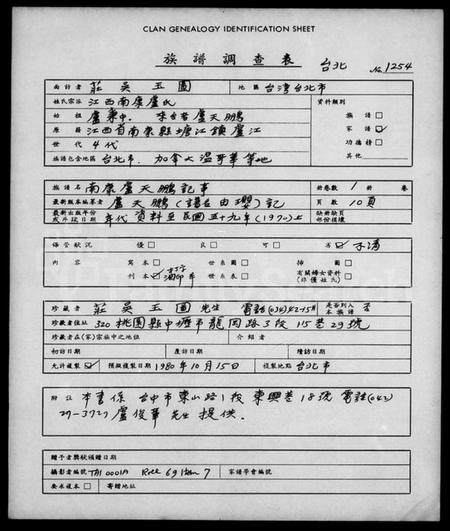 CLAN GENEALOGY IDENTIFICATION SHEET
族譜調查表 台北 No 1254
面訪者 莊吳玉圖 地區 台灣台北市
姓氏宗派 江西南康盧氏 資料類別
始祖 盧東中. 來台者盧天鵬 族譜 □
原籍 江西省南康縣塘江鎮盧江 家譜 ☑
世代 4代 功德榜 □
族譜包含地區 台北市. 加拿大溫哥華等地 其他
譜名 南康盧天鵬記事 冊卷數 1 冊
最新版本編纂者 盧天鵬(譜在由瓔)記 頁數 10頁
最新出版年份或手稿日期 年代資料至民國五十九年(1970)止 缺冊缺頁部份註標
保管狀況 優 □ 良 □ 可 □ 劣 ☑ 不清
內容 寫本 □ 世系圖 □ 掃圖 □
刊本 ☑ 打字 油印本 世系表 □ 有關婦女資料(非僅姓氏) □
珍藏者 莊吳玉圖 先生 電話(034)42-1511 是否列入本族譜 否
珍藏者住址 320 桃園縣中壢市龍岡路3段15巷29號
珍藏者在(家)宗族中之地位 介紹者
初訪日期 應訪日期 續訪日期
允許複製 ☑ 預擬複製日期 1980年10月15日 複製地點 台北市
附註 本書係 台中市東山路1段東興巷18號 電話(042)
27-3727 盧俊華先生提供.
贈予者獎狀頒贈日期
攝影者編號 TAI 0001A Roll 69 Item 7 家譜學會編號
要求複本 □ 寄贈地址